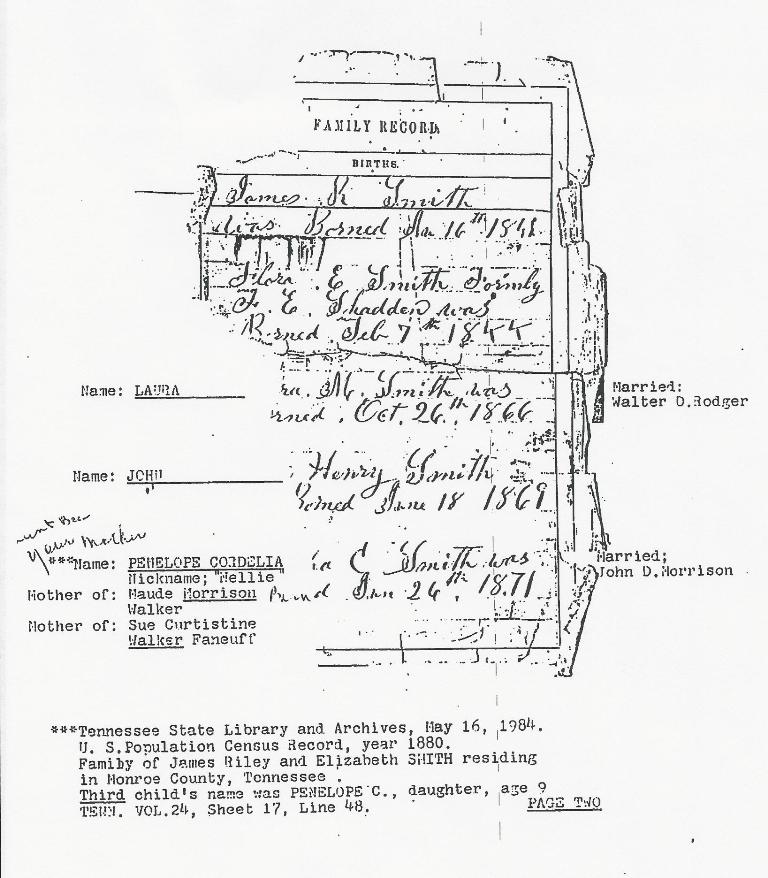 FAMILY RECORD.
BIRTHS.
James R Smith
was Borned 16th 1841
Flora E Smith Formly
F. E. Shadden was
Borned Feb 7th 1844
Name: LAURA
ra. M. Smith was
rned Oct. 26th 1866
Married:
Walter D.Rodger
Name: JOHN
Henry Smith
Borned June 18 1869
your Mother
***Name: PENELOPE CORDELIA
Nickname; "Nellie"
Mother of: Maude Morrison
Walker
Mother of: Sue Curtistine
Walker Faneuff
ia C Smith was
26th 1871
Married;
John D.Morrison
***Tennessee State Library and Archives, May 16, 1984.
U. S.Population Census Record, year 1880.
Family of James Riley and Elizabeth SMITH residing
in Monroe County, Tennessee .
Third child's name was PENELOPE C., daughter, age 9
TENN. VOL.24, Sheet 17, Line 48.
PAGE TWO